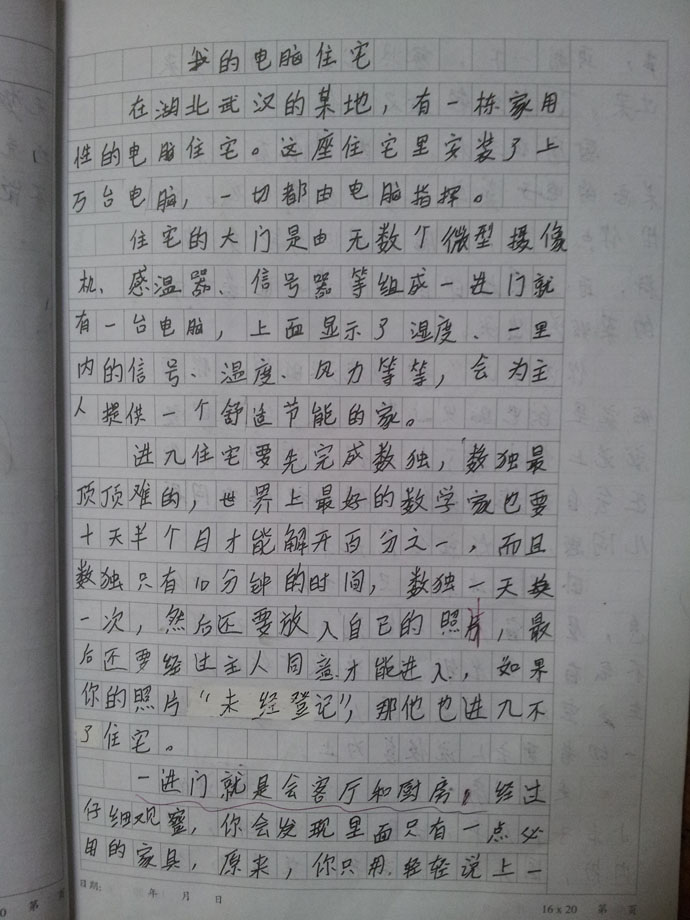 我的电脑住宅
在湖北武汉的某地，有一栋家用
性的电脑住宅。这座住宅里安装了上
万台电脑，一切都由电脑指挥。
住宅的大门是由无数个微型摄像
机、感温器、信号器等组成一进门就
有一台电脑，上面显示了湿度、一里
内的信号、温度、风力等等，会为主
人提供一个舒适节能的家。
进入住宅要先完成数独，数独最
顶顶难的，世界上最好的数学家也要
十天半个月才能解开百分之一，而且
数独只有10分钟的时间，数独一天换
一次，然后还要放入自己的照片，最
后还要经过主人同意才能进入，如果
你的照片“未经登记”，那他也进入不
了住宅。
一进门就是会客厅和厨房，经过
仔细观察，你会发现里面只有一点必
用的家具，原来，你只用轻轻说上一
日期： 年 月 日
16 x 20 第 页